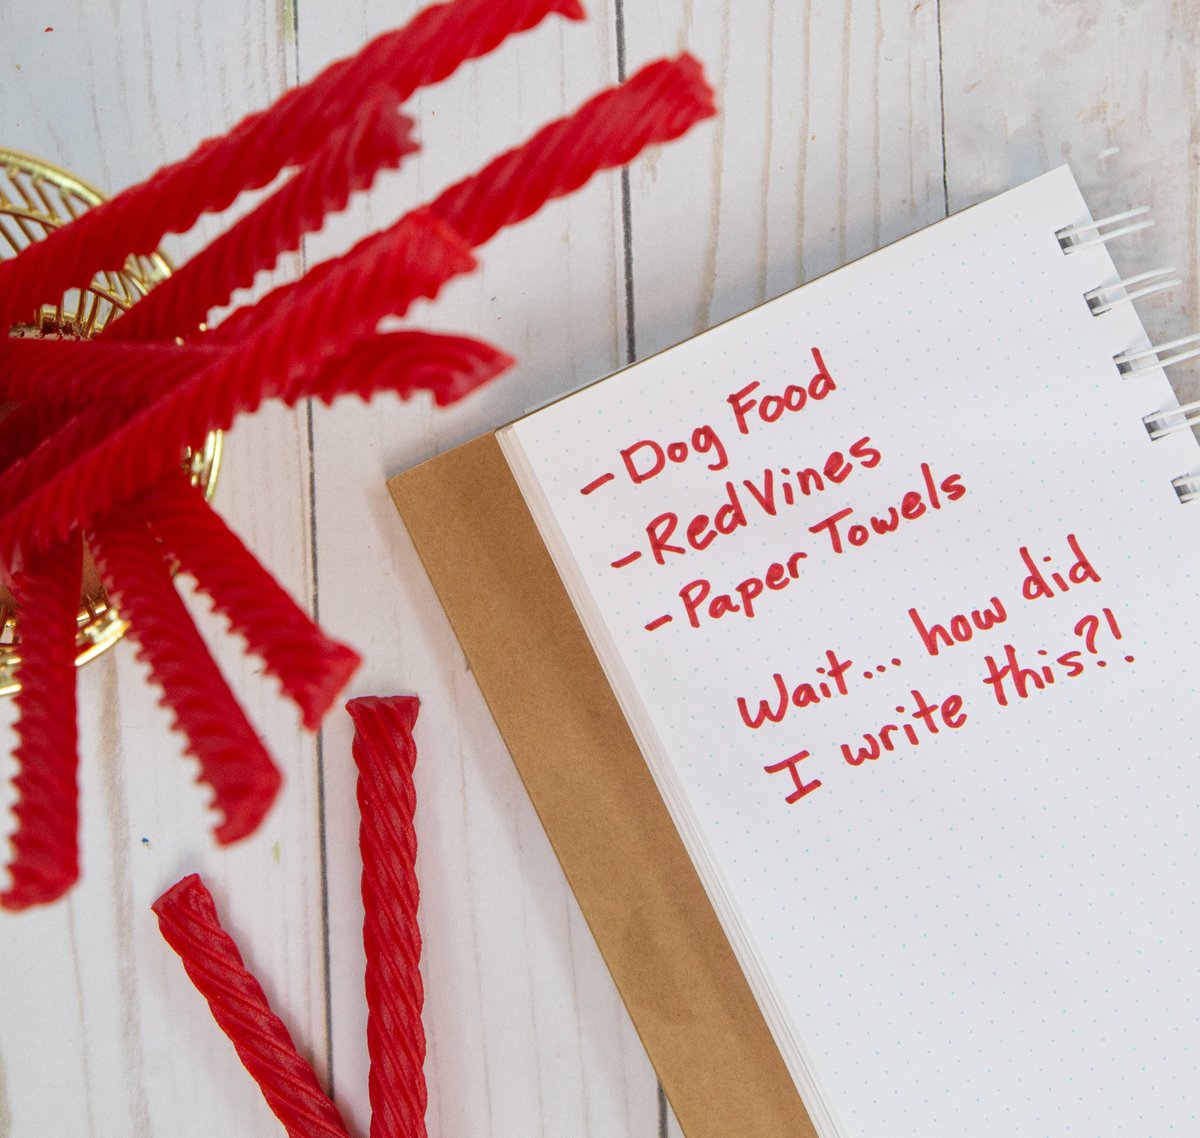 - Dog Food
- Red Vines
- Paper Towels
Wait... how did
I write this?!